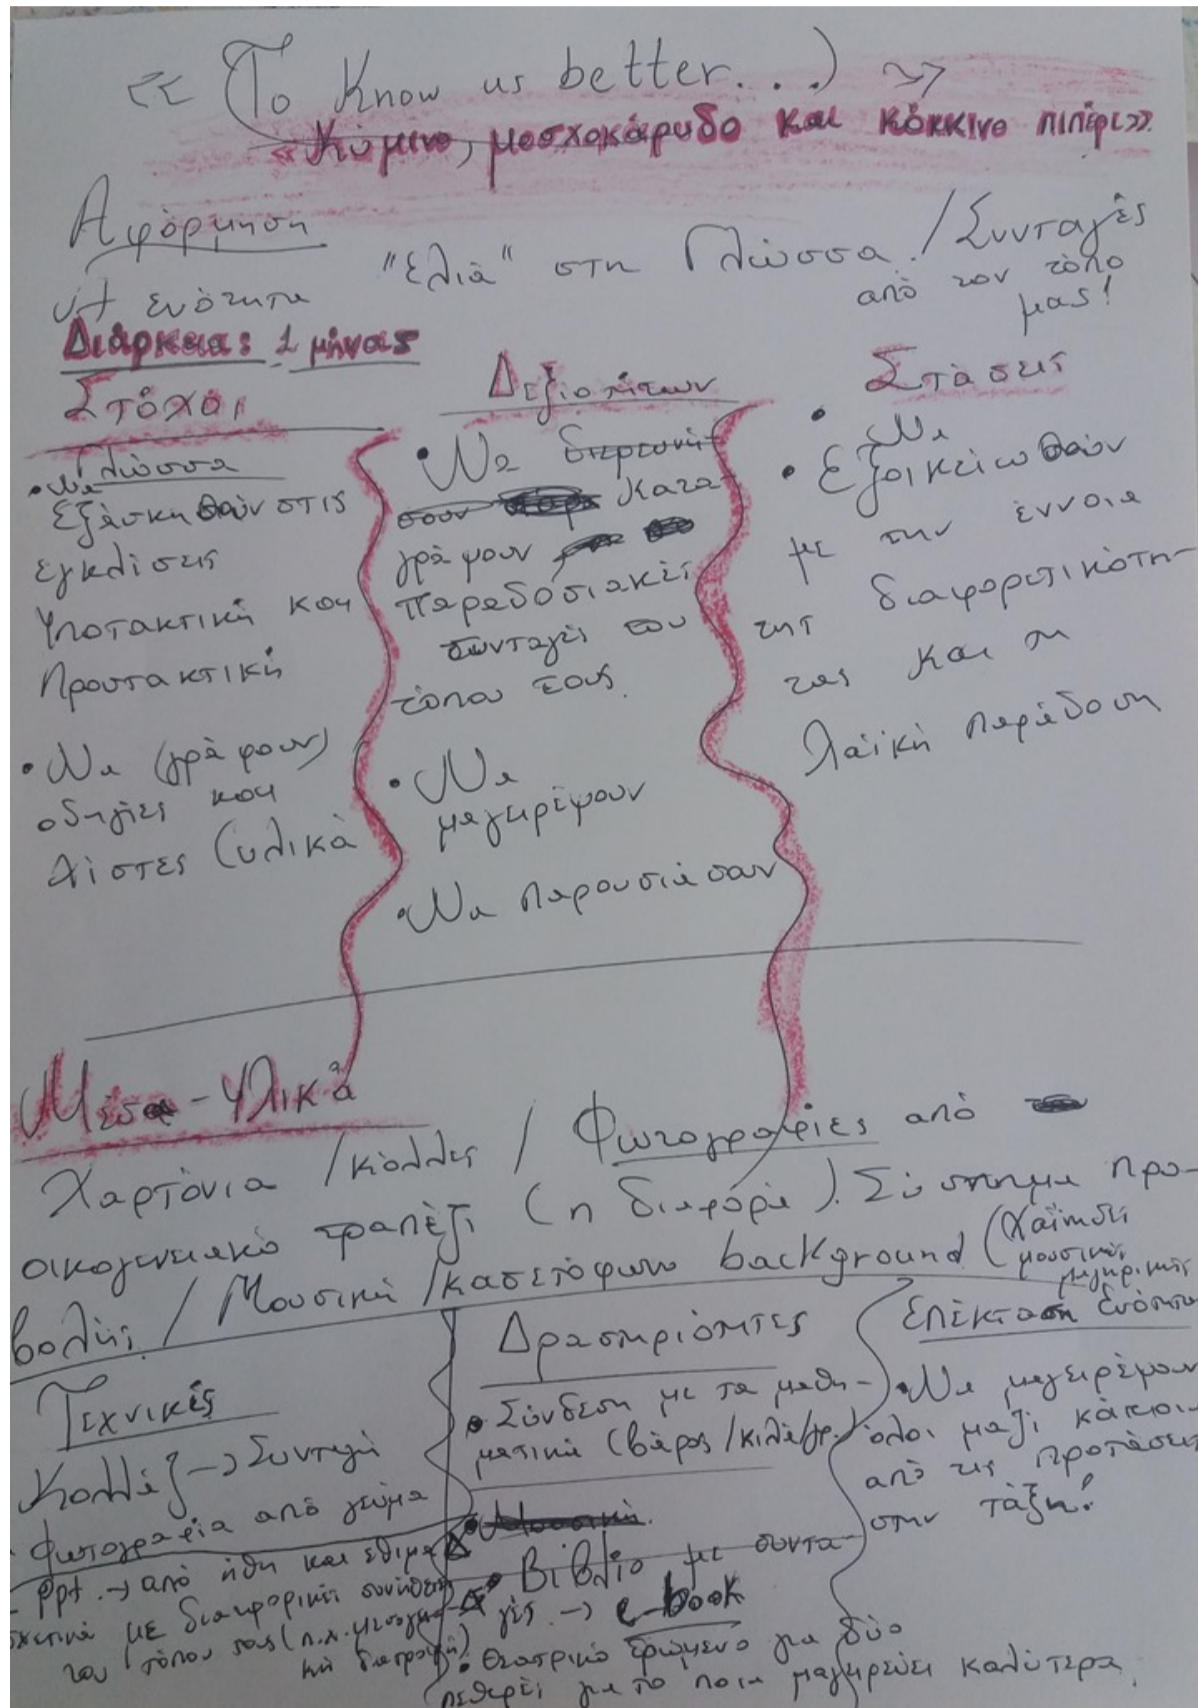 << (To Know us better...) >>
«Κύμινο, μοσχοκάρυδο και κόκκινο πιπέρι».
Αφόρμηση
ενότητα "Ελιά" στη Γλώσσα / Συνταγές
από τον τόπο
μας!
Διάρκεια: 1 μήνας
Στόχοι
Γλώσσα
• Να
εξασκηθούν στις
εγκλίσεις
Υποτακτική και
Προστακτική
• Να (γράφουν)
οδηγίες και
λίστες (υλικά
Δεξιοτήτων
• Να διερευνή-
σουν κατα-
γράψουν
παραδοσιακές
συνταγές του
τόπου τους.
• Να
μαγειρέψουν
• Να παρουσιάσουν
Στάσεις
• Να
• Εξοικειωθούν
με την έννοια
της διαφορετικότη-
τας και τη
λαϊκή παράδοση
Μέσα - Υλικά
Χαρτόνια / κόλλες / Φωτογραφίες από
οικογενειακό τραπέζι (η διαφορά). Σύστημα προ-
βολής / Μουσική / κασετόφωνο background (
μουσικής
μαγειρικής
Τεχνικές
Κολλάζ -> Συνταγή
- Φωτογραφία από γεύμα
- ppt. -> από ήθη και έθιμα
σχετικά με διατροφικές συνήθειες
του τόπου τους (π.χ. μεσογεια-
κή διατροφή)
Δραστηριότητες
• Σύνδεση με τα μαθη-
ματικά (βάρος/κιλά/γρ.)
• Μουσική.
• Βιβλίο με συντα-
γές. -> e-book
• Θεατρικό δρώμενο για δύο
πεθερές για το ποια μαγειρεύει καλύτερα.
Επέκταση Ενότητα
• Να μαγειρέψουν
όλοι μαζί κάποια
από τις προτάσεις
στην τάξη!